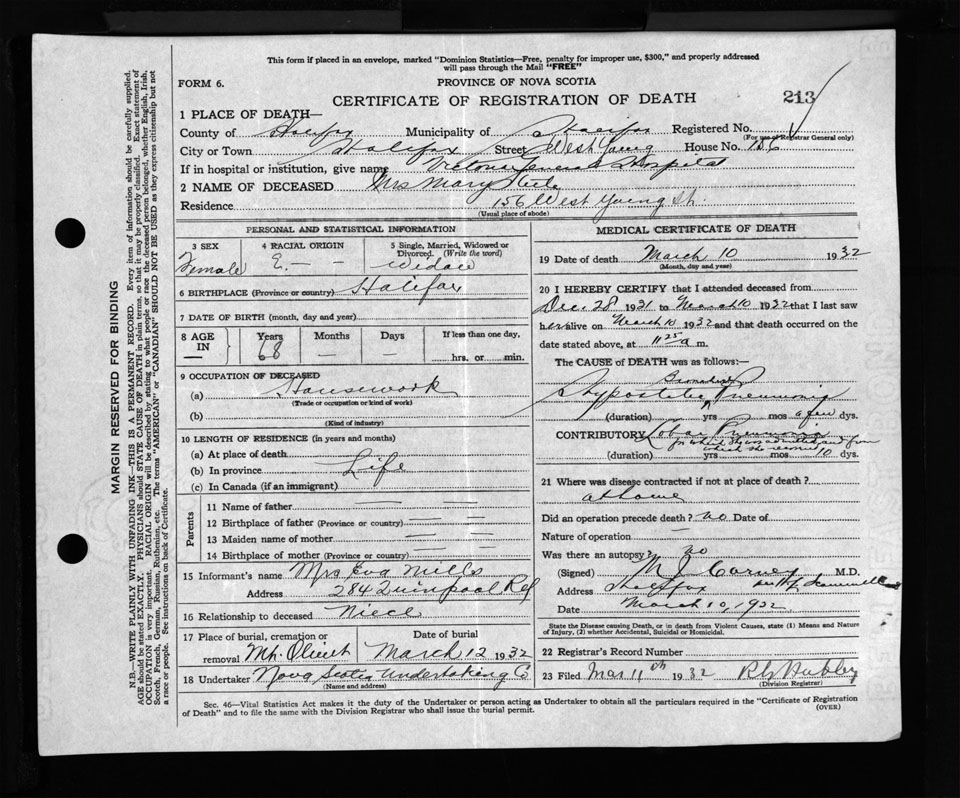 This form if placed in an envelope, marked "Dominion Statistics—Free, penalty for improper use, $300," and properly addressed
will pass through the Mail "FREE"
FORM 6.
PROVINCE OF NOVA SCOTIA
CERTIFICATE OF REGISTRATION OF DEATH
213
1 PLACE OF DEATH—
County of Halifax Municipality of Halifax Registered No.
(For use of Registrar General only)
City or Town Halifax Street West Young House No. 156
If in hospital or institution, give name Victoria General Hospital
2 NAME OF DECEASED Mrs Mary Steele
Residence 156 West Young St.
(Usual place of abode)
PERSONAL AND STATISTICAL INFORMATION
3 SEX
Female
4 RACIAL ORIGIN
E. — —
5 Single, Married, Widowed or
Divorced. (Write the word)
6 BIRTHPLACE (Province or country) Halifax
7 DATE OF BIRTH (month, day and year)
8 AGE IN
Years
68
Months
—
Days
—
If less than one day,
hrs. or min.
9 OCCUPATION OF DECEASED
(a) Housework
(Trade or occupation or kind of work)
(b)
(Kind of industry)
10 LENGTH OF RESIDENCE (in years and months)
(a) At place of death
(b) In province Life
(c) In Canada (if an immigrant)
Parents
11 Name of father — —
12 Birthplace of father (Province or country) — —
13 Maiden name of mother — —
14 Birthplace of mother (Province or country) — —
15 Informant's name Mrs Eva Mills
Address 284 Quinpool Rd
16 Relationship to deceased Niece
17 Place of burial, cremation or
removal Mt. Olivet
Date of burial
March 12 1932
18 Undertaker Nova Scotia Undertaking Co
(Name and address)
MEDICAL CERTIFICATE OF DEATH
19 Date of death March 10 1932
(Month, day and year)
20 I HEREBY CERTIFY that I attended deceased from
Dec. 28 1931 to March 10 1932 that I last saw
her alive on March 10 1932 and that death occurred on the
date stated above, at 11 25 a m.
The CAUSE of DEATH was as follows:—
Hypostatic Pneumonia
(duration) yrs mos a few dys.
CONTRIBUTORY Lobar Pneumonia
for which she was admitted and from
which she recovered
(duration) yrs mos 10 dys.
21 Where was disease contracted if not at place of death?
at home
Did an operation precede death? no Date of
Nature of operation —
Was there an autopsy? no
(Signed) M J Carney M.D.
Address Halifax
Date March 10, 1932
State the Disease causing Death, or in death from Violent Causes, state (1) Means and
Nature of Injury, (2) whether Accidental, Suicidal or Homicidal.
22 Registrar's Record Number
23 Filed Mar 11th 1932
(Division Registrar)
Sec. 46—Vital Statistics Act makes it the duty of the Undertaker or person acting as Undertaker to obtain all the particulars required in the "Certificate of Registration
of Death" and to file the same with the Division Registrar who shall issue the burial permit. (OVER)
MARGIN RESERVED FOR BINDING
N.B.—WRITE PLAINLY WITH UNFADING INK—THIS IS A PERMANENT RECORD. Every item of information should be carefully supplied.
AGE should be stated EXACTLY. PHYSICIANS should STATE CAUSE OF DEATH in plain terms, so that it may be properly classified. Exact statement of
OCCUPATION is very important. RACIAL ORIGIN will be described by stating to what people or race the deceased person belonged, whether English, Irish,
Scotch, French, German, Russian, Ruthenian, etc. The terms "AMERICAN" or "CANADIAN" SHOULD NOT BE USED as they express citizenship but not
a race or people. See instructions on back of Certificate.